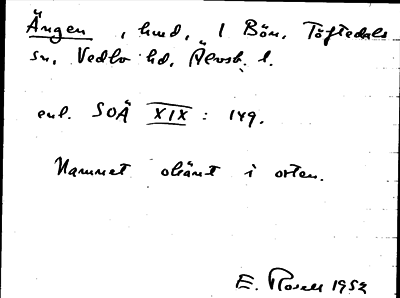 Ängen, hmd, 1 Bön, Töftedals
sn, Vedbo hd, Älvsb. l.
enl. SOÄ XIX : 149.
Namnet okänt i orten.
E. Rosell 1952